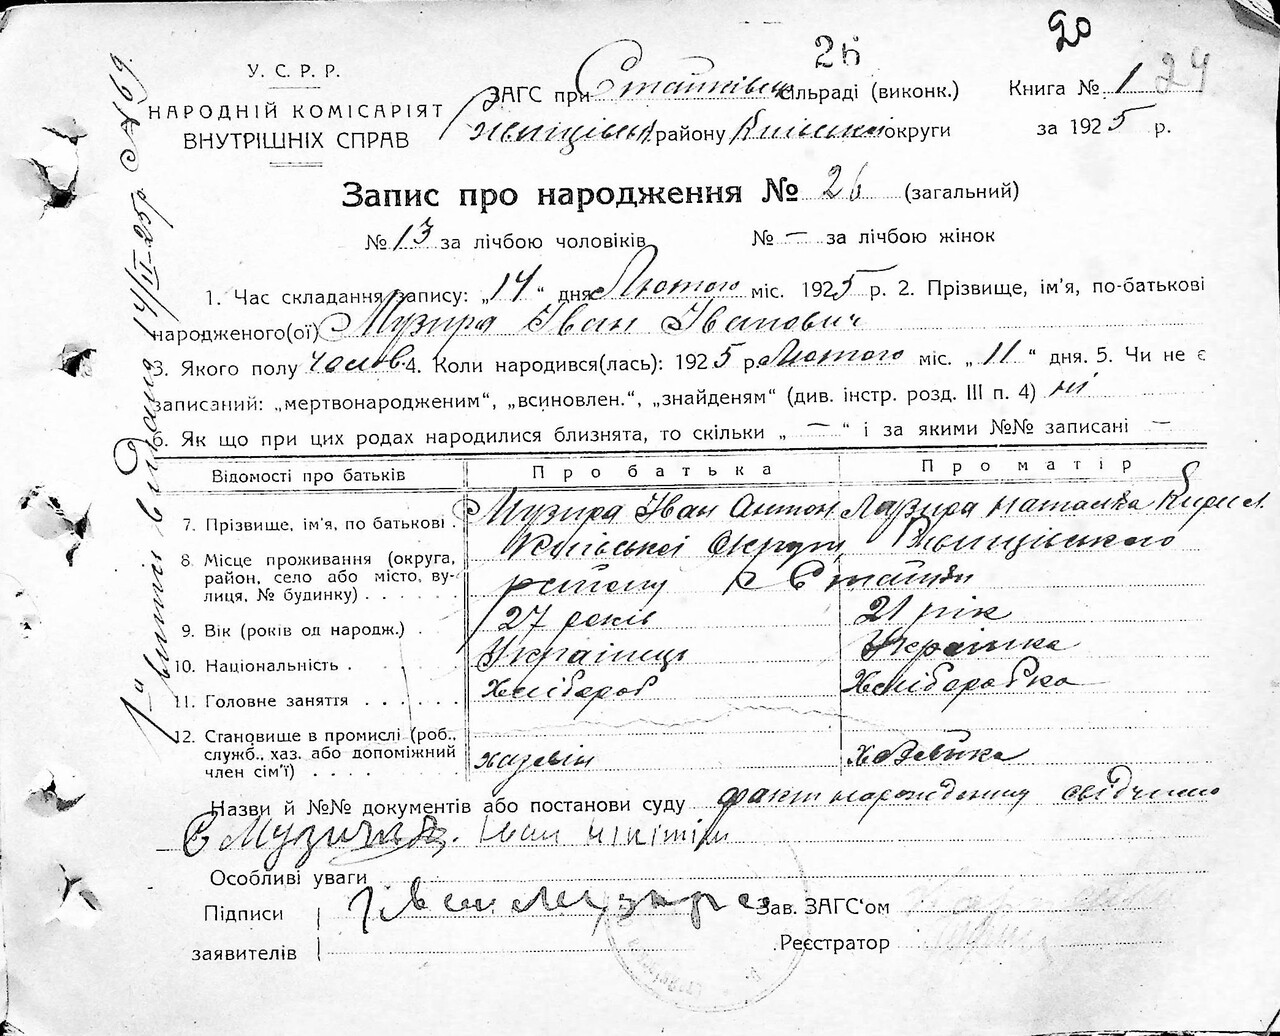 20
26
24
У. С. Р. Р.
НАРОДНІЙ КОМІСАРІЯТ
ВНУТРІШНІХ СПРАВ
ЗАГС при Стайківськ сільраді (виконк.) Книга № 1
району Київської округи за 1925 р.
Запис про народження № 26 (загальний)
№ 13 за лічбою чоловіків № — за лічбою жінок
1. Час складання запису: „14“ дня Лютого міс. 1925 р. 2. Прізвище, ім'я, по-батькові
народженого(ої) Музира Іван Іванович
3. Якого полу чолов 4. Коли народився(лась): 1925 р. Лютого міс. „11“ дня. 5. Чи не є
записаний: „мертвонародженим“, „всиновлен.“, „знайденям“ (див. інстр. розд. III п. 4) ні
6. Як що при цих родах народилися близнята, то скільки „ — “ і за якими №№ записані —
Відомості про батьків Про батька Про матір
7. Прізвище, ім'я, по батькові . Музира Іван Антон Музира Наталка Кирил.
8. Місце проживання (округа, район, село або місто, вулиця, № будинку) . . . . . Київської Округи
району с Стайки
9. Вік (років од народж.) . 27 років 21 рік
10. Національність . Українець Українка
11. Головне заняття . . . . . . Хлібороб Хлібороbка
12. Становище в промислі (роб., служб., хаз. або допоміжний член сім'ї) . . . . хазяїн хазяйка
Назви й №№ документів або постанови суду факт народження свідчимо
Іван
Особливі уваги
Підписи Іван Музира Зав. ЗАГС'ом
заявителів Реєстратор
1-й витяг видано 14/II-25р № 69.